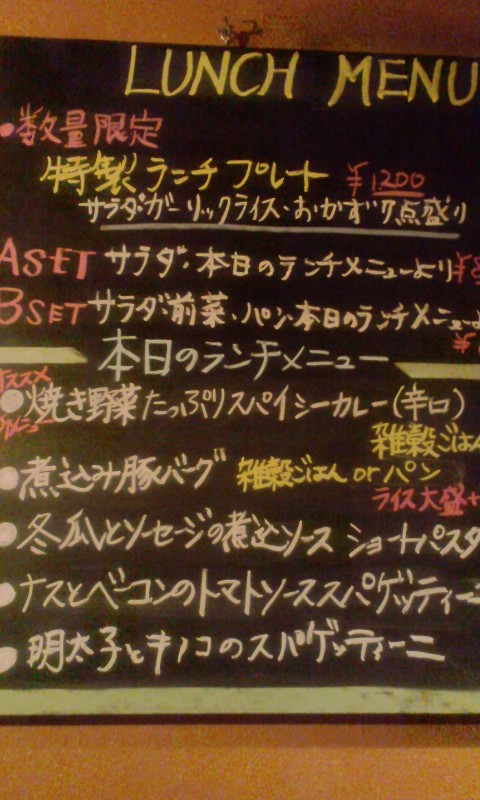 LUNCH MENU
●数量限定
特製ランチプレート ¥1200
サラダ・ガーリックライス・おかず7点盛り
A SET サラダ・本日のランチメニューより
B SET サラダ・前菜・パン・本日のランチメニュー
本日のランチメニュー
オススメ
●焼き野菜たっぷりスパイシーカレー(辛口)
雑穀ごはん
●煮込み豚バーグ 雑穀ごはん or パン
ライス大盛+
●冬瓜とソーセージの煮込ソース ショートパスタ
●ナスとベーコンのトマトソーススパゲッティーニ
●明太子とキノコのスパゲッティーニ